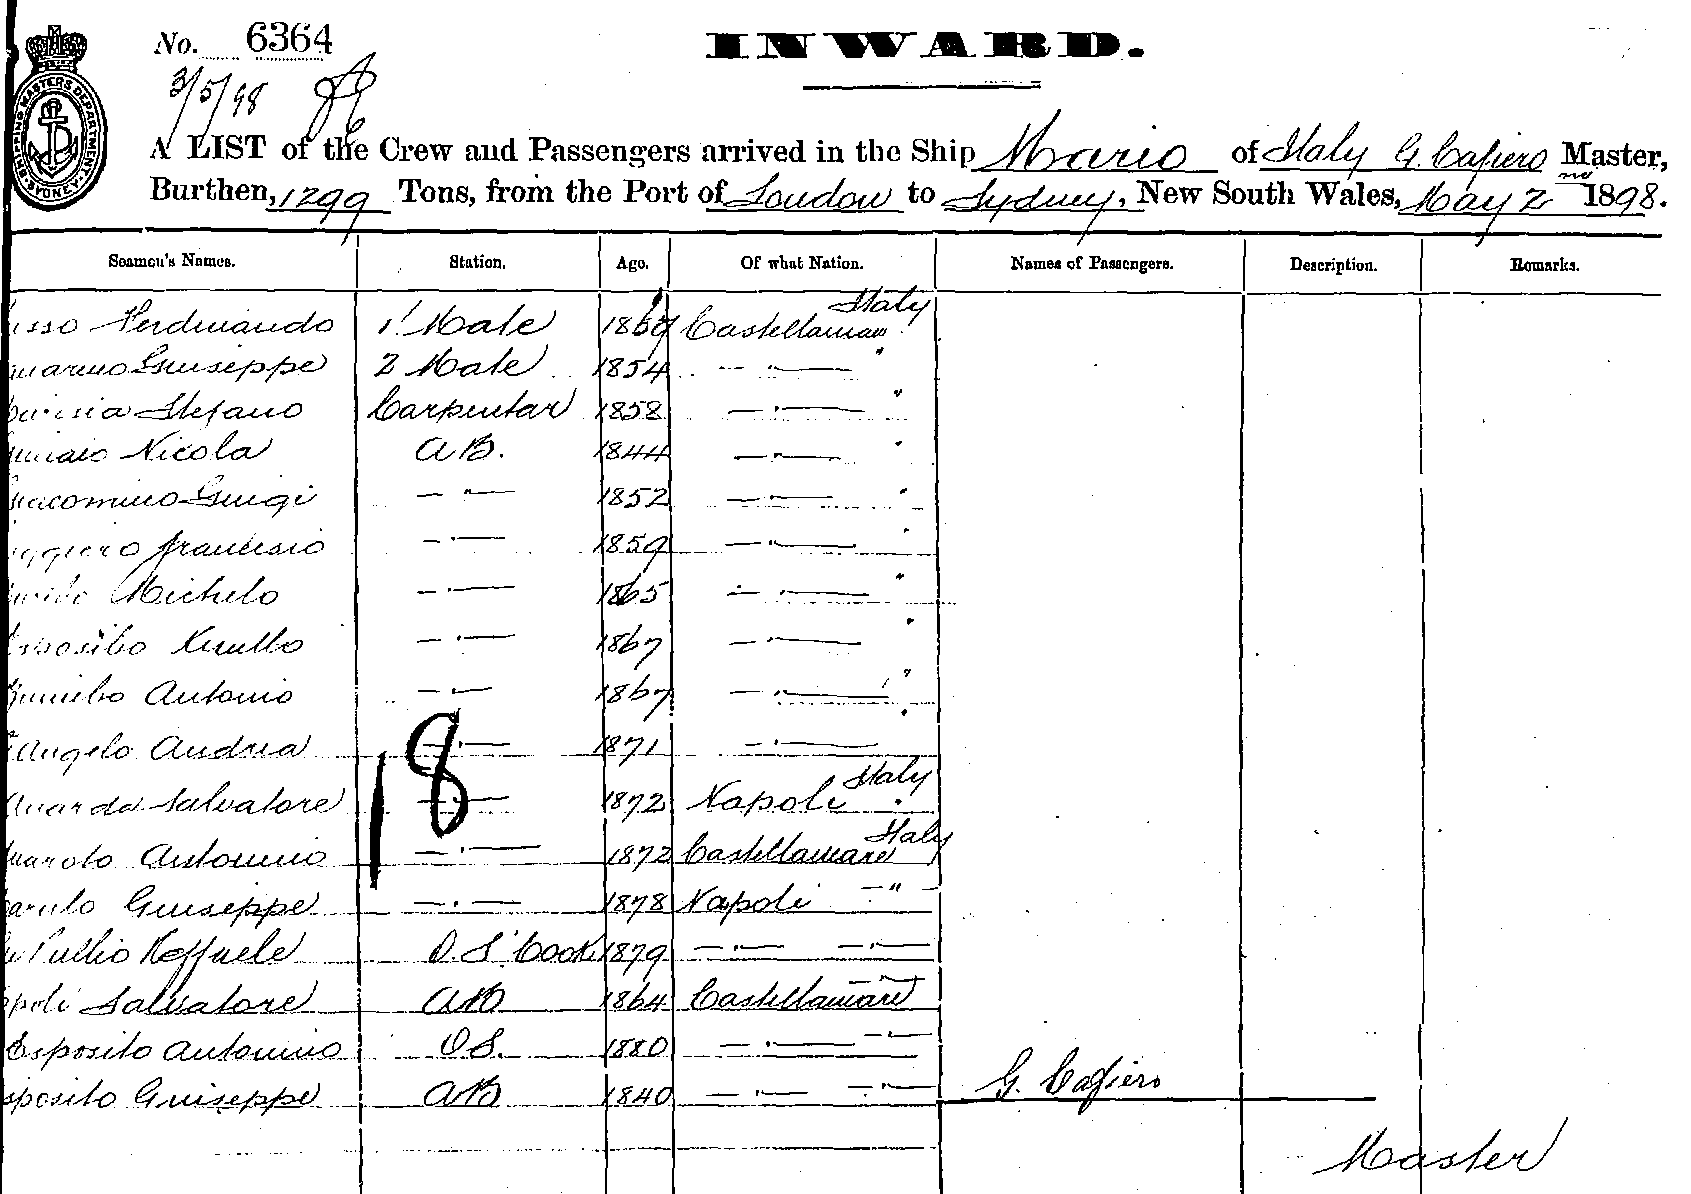 No. 6364
3/5/98
INWARD.
SHIPPING MASTERS DEPARTMENT SYDNEY
A LIST of the Crew and Passengers arrived in the Ship Mario of Italy G. Cafiero Master,
Burthen, 1299 Tons, from the Port of London to Sydney, New South Wales, May 2nd 1898.
Seamen's Names. Station. Age. Of what Nation. Names of Passengers. Description. Remarks.
Ferdinando 1' Mate 1869 Castellamare Italy
Giuseppe 2 Mate 1854 — " — "
Stefano Carpentar 1858 — " — "
Nicola AB. 1844 — " — "
Giacomino Luigi — " — 1852 — " — "
Francesco — " — 1859 — " — "
Michele — " — 1865 — " — "
Esposito — " — 1867 — " — "
Antonio — " — 1867 — " — "
Angelo Andrea — " — 1871 — " —
18
Salvatore — " — 1872 Napoli Italy "
Antonino — " — 1872 Castellamare Italy
Giuseppe — " — 1878 Napoli — " —
Raffaele O.S. Cook 1879 — " — — " —
Salvatore AB 1864 Castellamare — " —
Esposito Antonino OS. 1880 — " — — " —
sposito Giuseppe AB 1840 — " — — " — G. Cafiero
Master